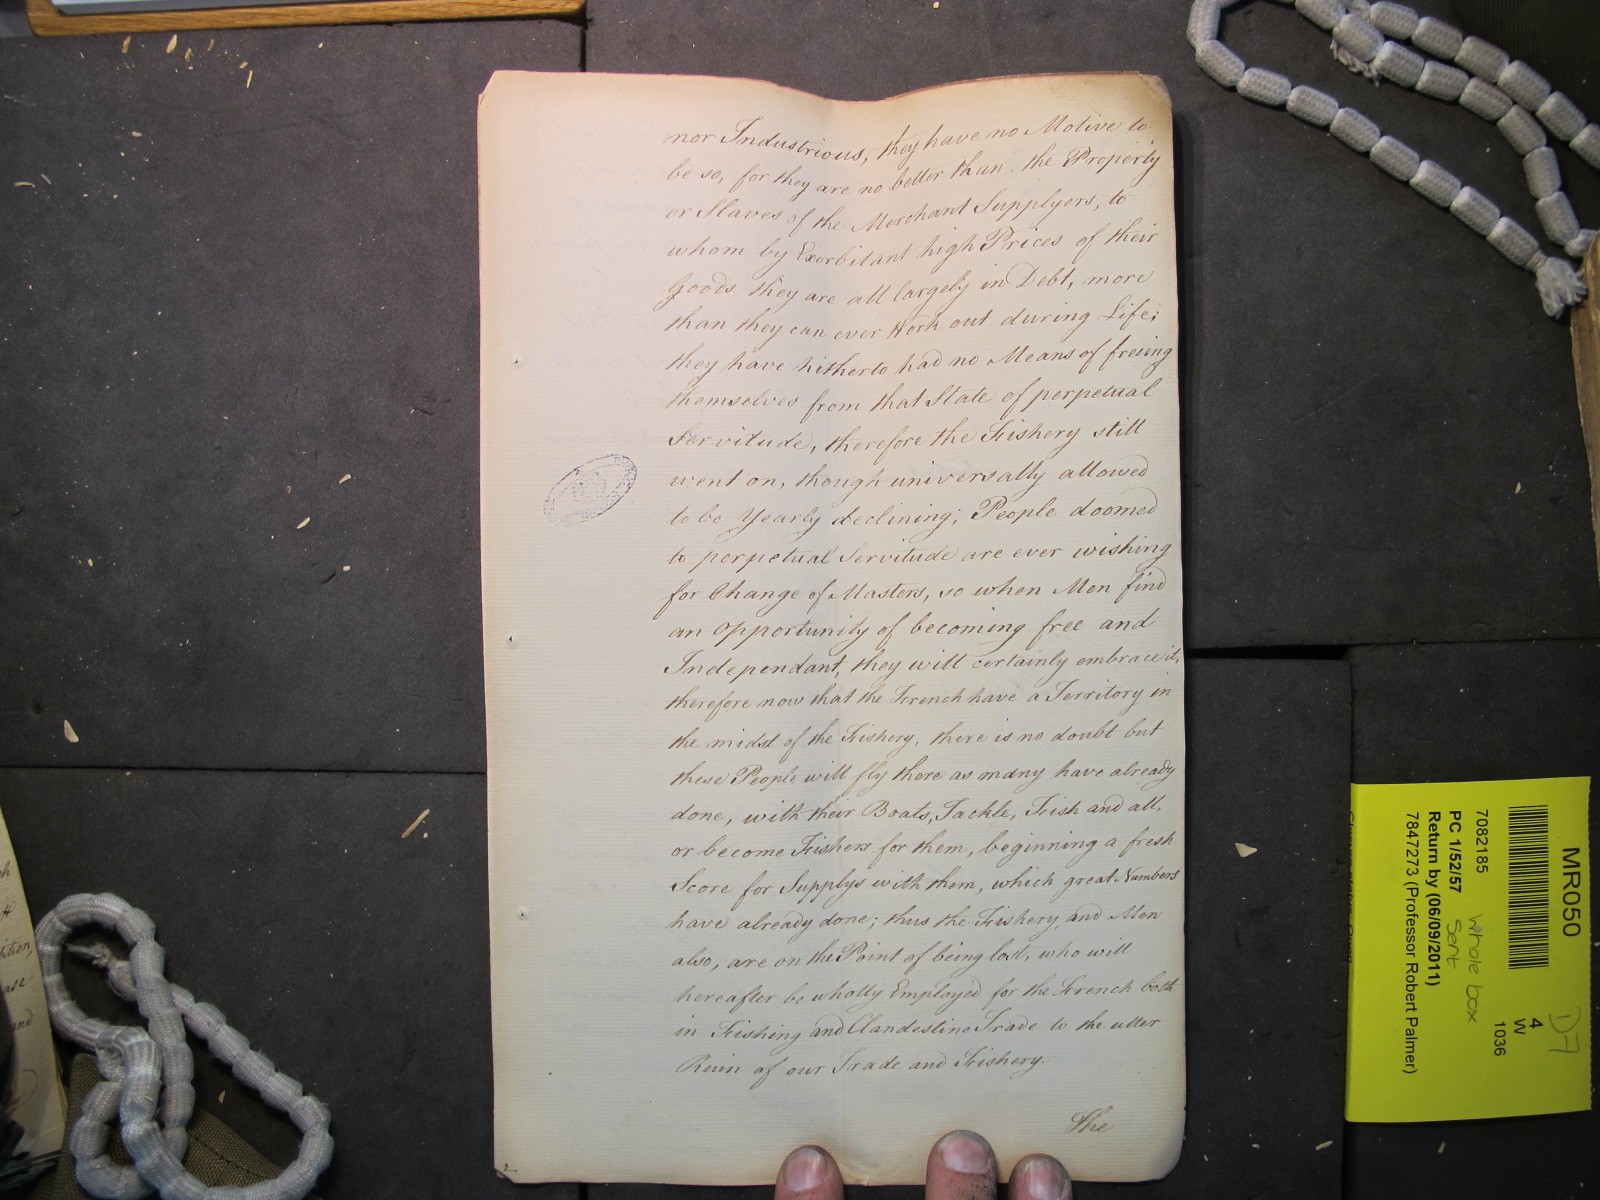 nor Industrious, they have no Motive to
be so, for they are no better than the Property
or Slaves of the Merchant Supplyers, to
whom by Exorbitant high Prices of their
Goods they are all largely in Debt, more
than they can ever Work out during Life;
they have hitherto had no Means of freeing
themselves from that State of perpetual
Servitude, therefore the Fishery still
went on, though universally allowed
to be Yearly declining; People doomed
to perpetual Servitude are ever wishing
for Change of Masters, so when Men find
an Opportunity of becoming free and
Independant, they will certainly embrace it,
therefore now that the French have a Territory in
the midst of the Fishery, there is no doubt but
these People will fly there as many have already
done, with their Boats, Tackle, Fish and all,
or become Fishers for them, beginning a fresh
Score for Supplys with them, which great Numbers
have already done; thus the Fishery, and Men
also, are on the Point of being lost, who will
hereafter be wholly Employed for the French both
in Fishing and Clandestine Trade to the utter
Ruin of our Trade and Fishery.
The
2
MR050
D7
4
W
1036
7082185
whole box
PC 1/52/57 sent
Return by (06/09/2011)
7847273 (Professor Robert Palmer)
ase
and